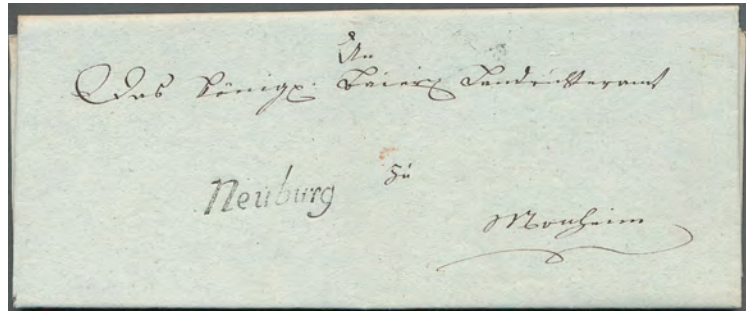 An
Das königl: baier: Landrichteramt
zu
Neuburg
Monheim